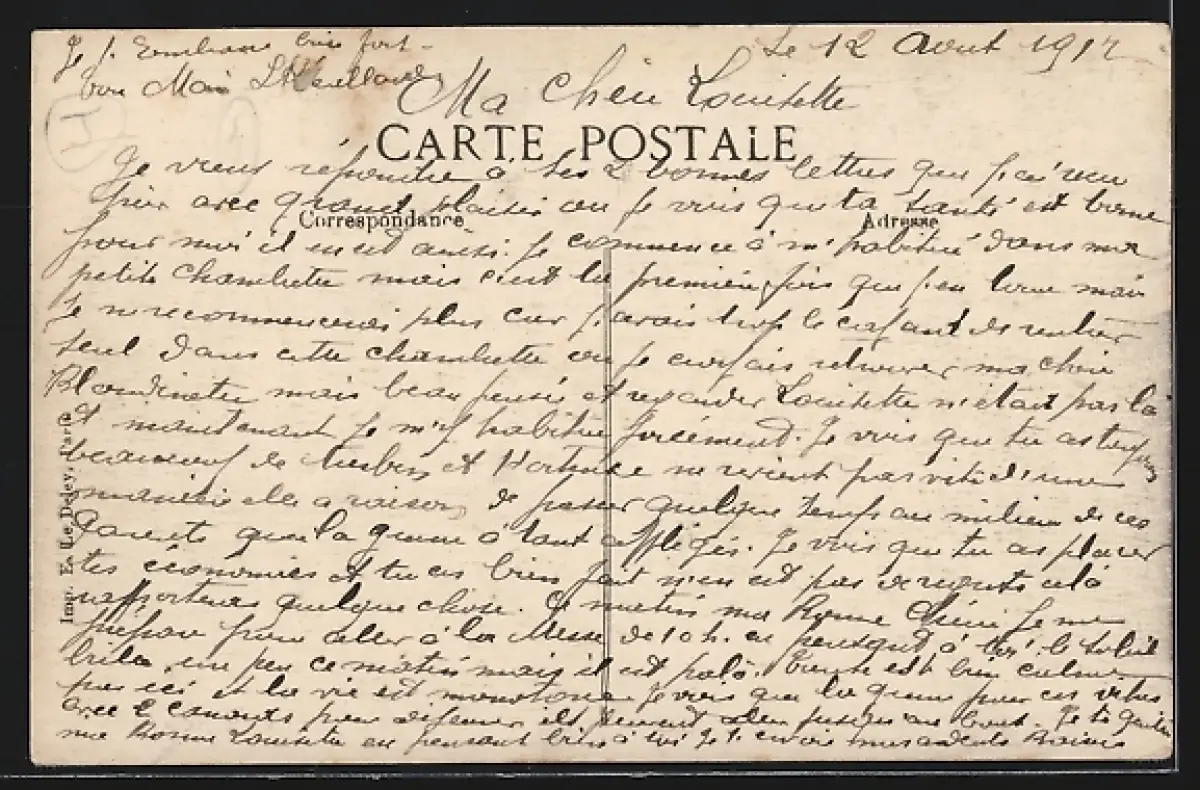 Je t'embrasse bien fort
ton Mari
Le 12 Aout 1917
Ma Chère Louisette
CARTE POSTALE
Je viens répondre à tes 2 bonnes lettres que j'ai reçu
hier avec grand plaisir ou je vois que ta santé est bonne
Correspondance
Adresse
pour moi il en est aussi. Je commence à m'habitué dans ma
petite chambrette mais c'est la première fois que j'en loue mais
Je ne recommencerai plus car j'avais trop le cafard de rentrer
seul dans cette chambrette ou je croyais retrouver ma chère
Blondinette mais beau penser et regarder Louisette n'était pas là
et maintenant je m'y habitue forcément. Je vois que tu as toujours
beaucoup de et Hortense ne revient pas vite d'une
manière elle a raison de passer quelque temps au milieu de ces
Parents que la guerre à tant affligés. Je vois que tu as placer
tes économies et tu as bien fait n'en est pas de reste celà
rapportera quelque chose. Ce matin ma Bonne Chérie je me
prépare pour aller à la Messe de 10 h. en pensant à toi. le soleil
brille un peu ce matin mais il est palo. est bien calme
par ici et la vie est monotone Je vois que la guerre pour ces
avec le pour ils tiennent aller jusqu'au bout. Je te quitte
ma Bonne Louisette en pensant bien à toi je t'envoie mes ardents Baisers
Imp. E. Le Deley, Paris